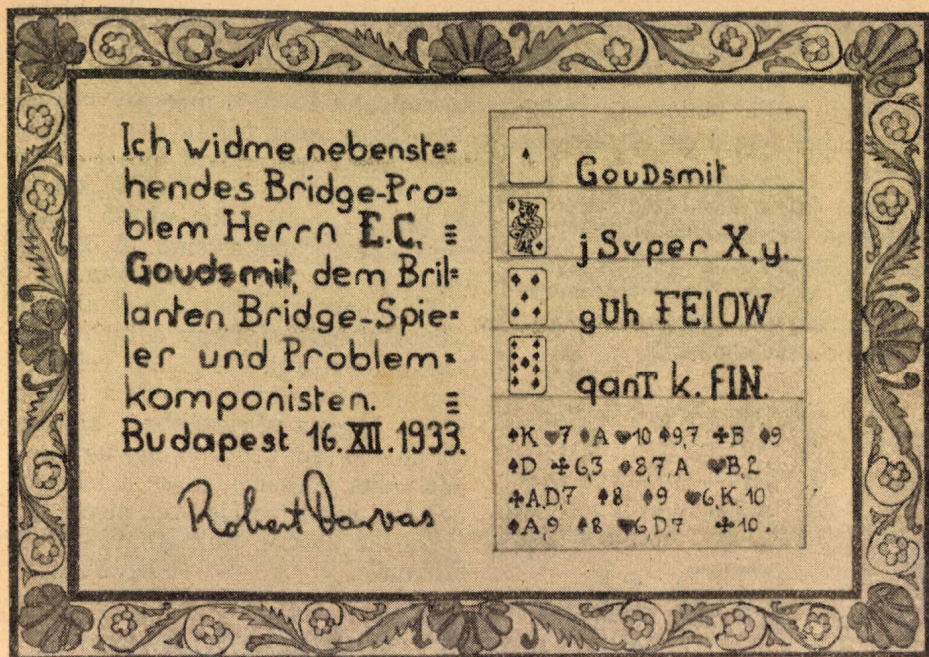 Ich widme nebenste=
hendes Bridge-Pro=
blem Herrn E.C. =
Goudsmit, dem Bril=
lanten Bridge-Spie=
ler und Problem=
komponisten. =
Budapest 16.XII.1933.
Robert Darvas
GouDsmit
jSvper X,y.
gUh FElOW
qanT k. FIN.
♠K ♥7 ♦A ♥10 ♦9,7 ♣B ♦9
♠D ♣6,3 ♦8,7,A ♥B,2
♣A,D,7 ♠8 ♦9 ♥6,K,10
♠A,9 ♠8 ♥6,D,7 ♣10.